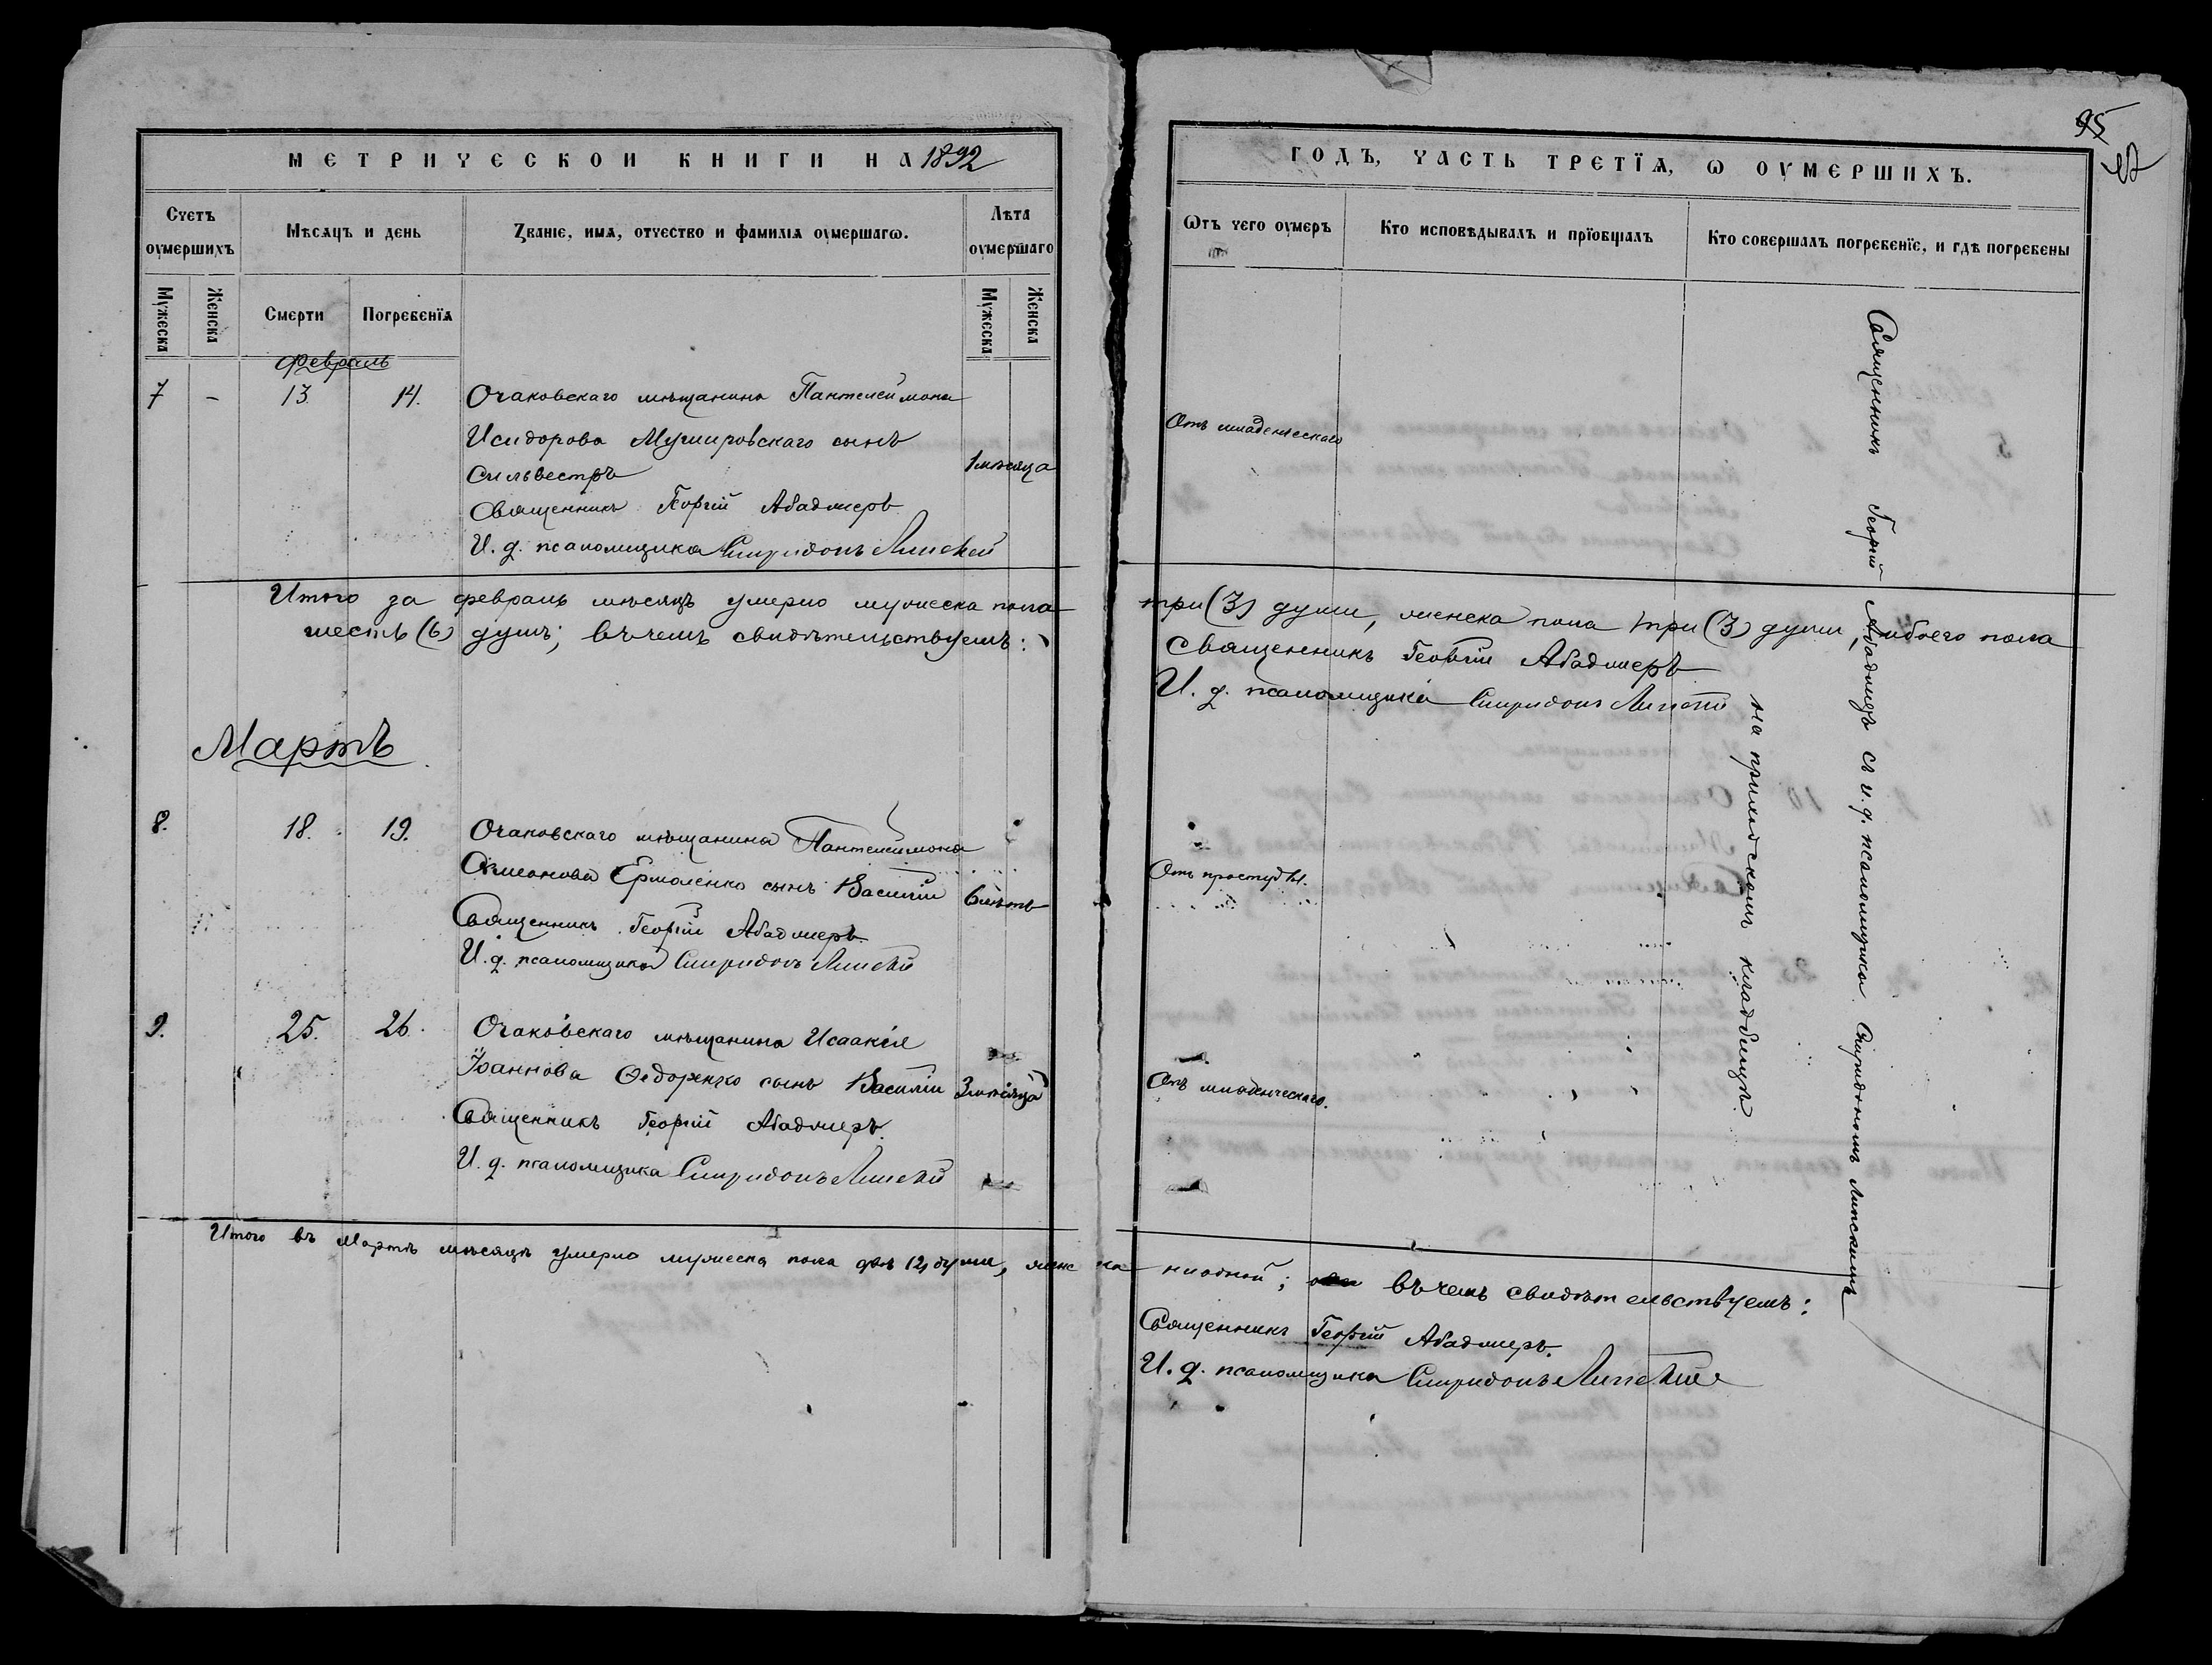 МЕТРИЧЕСКОИ КНИГИ НА 1892
Счетъ оумершихъ
Мѣсяцъ и день
Званіе, имя, отчество и фамилія оумершагω.
Лѣта оумершаго
Мужеска
Женска
Смерти
Погребенїя
Мужеска
Женска
Февраль
7 - 13 14. Очаковскаго мѣщанина Пантелеймона
Исидорова сынъ
Сильвестръ
1 мѣсяца
Священникъ Георгій Абаджеръ
И. д. псаломщика Спиридонъ Липскій
Итого за февраль мѣсяцъ умерло мужеска пола
шесть (6) душъ; въ чемъ свидѣтельствуемъ:
Мартъ
8. 18. 19. Очаковскаго мѣщанина Пантелеймона
Симеонова Ермоленко сынъ Василій 6 лѣтъ
Священникъ Георгій Абаджеръ.
И. д. псаломщика Спиридонъ Липскій
9. 25. 26. Очаковскаго мѣщанина Исаакія
Іоаннова Ѳедоренко сынъ Василій 3 мѣсяца
Священникъ Георгій Абаджеръ.
И. д. псаломщика Спиридонъ Липскій
Итого въ Мартѣ мѣсяцѣ умерло мужеска пола двѣ (2) души, женска
95
ГОДЪ, ЧАСТЬ ТРЕТЇЯ, Ѡ ОУМЕРШИХЪ.
Ѡтъ чего оумеръ
Кто исповѣдывалъ и прїобщалъ
Кто совершалъ погребенїе, и гдѣ погребены
Отъ младенческаго
три (3) души, женска пола три (3) души, обоего пола
Священникъ Георгій Абаджеръ
И. д. псаломщика Спиридонъ Липскій
Отъ простуды.
Отъ младенческаго.
Священникъ Георгій Абаджеръ съ и. д. псаломщика Спиридономъ Липскимъ
на приходскомъ кладбищѣ.
ниодной; въ чемъ свидѣтельствуемъ:
Священникъ Георгій Абаджеръ.
И. д. псаломщика Спиридонъ Липскій